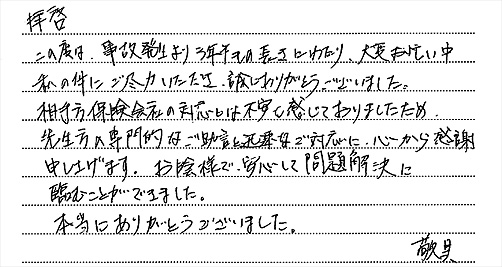 拝啓
この度は、事故発生より3年半もの長きにわたり、大変お忙しい中
私の件にご尽力いただき、誠にありがとうございました。
相手方保険会社の対応には不安を感じておりましたため、
先生方の専門的なご助言と迅速なご対応に、心から感謝
申し上げます。お陰様で、安心して問題解決に
臨むことができました。
本当にありがとうございました。
敬具